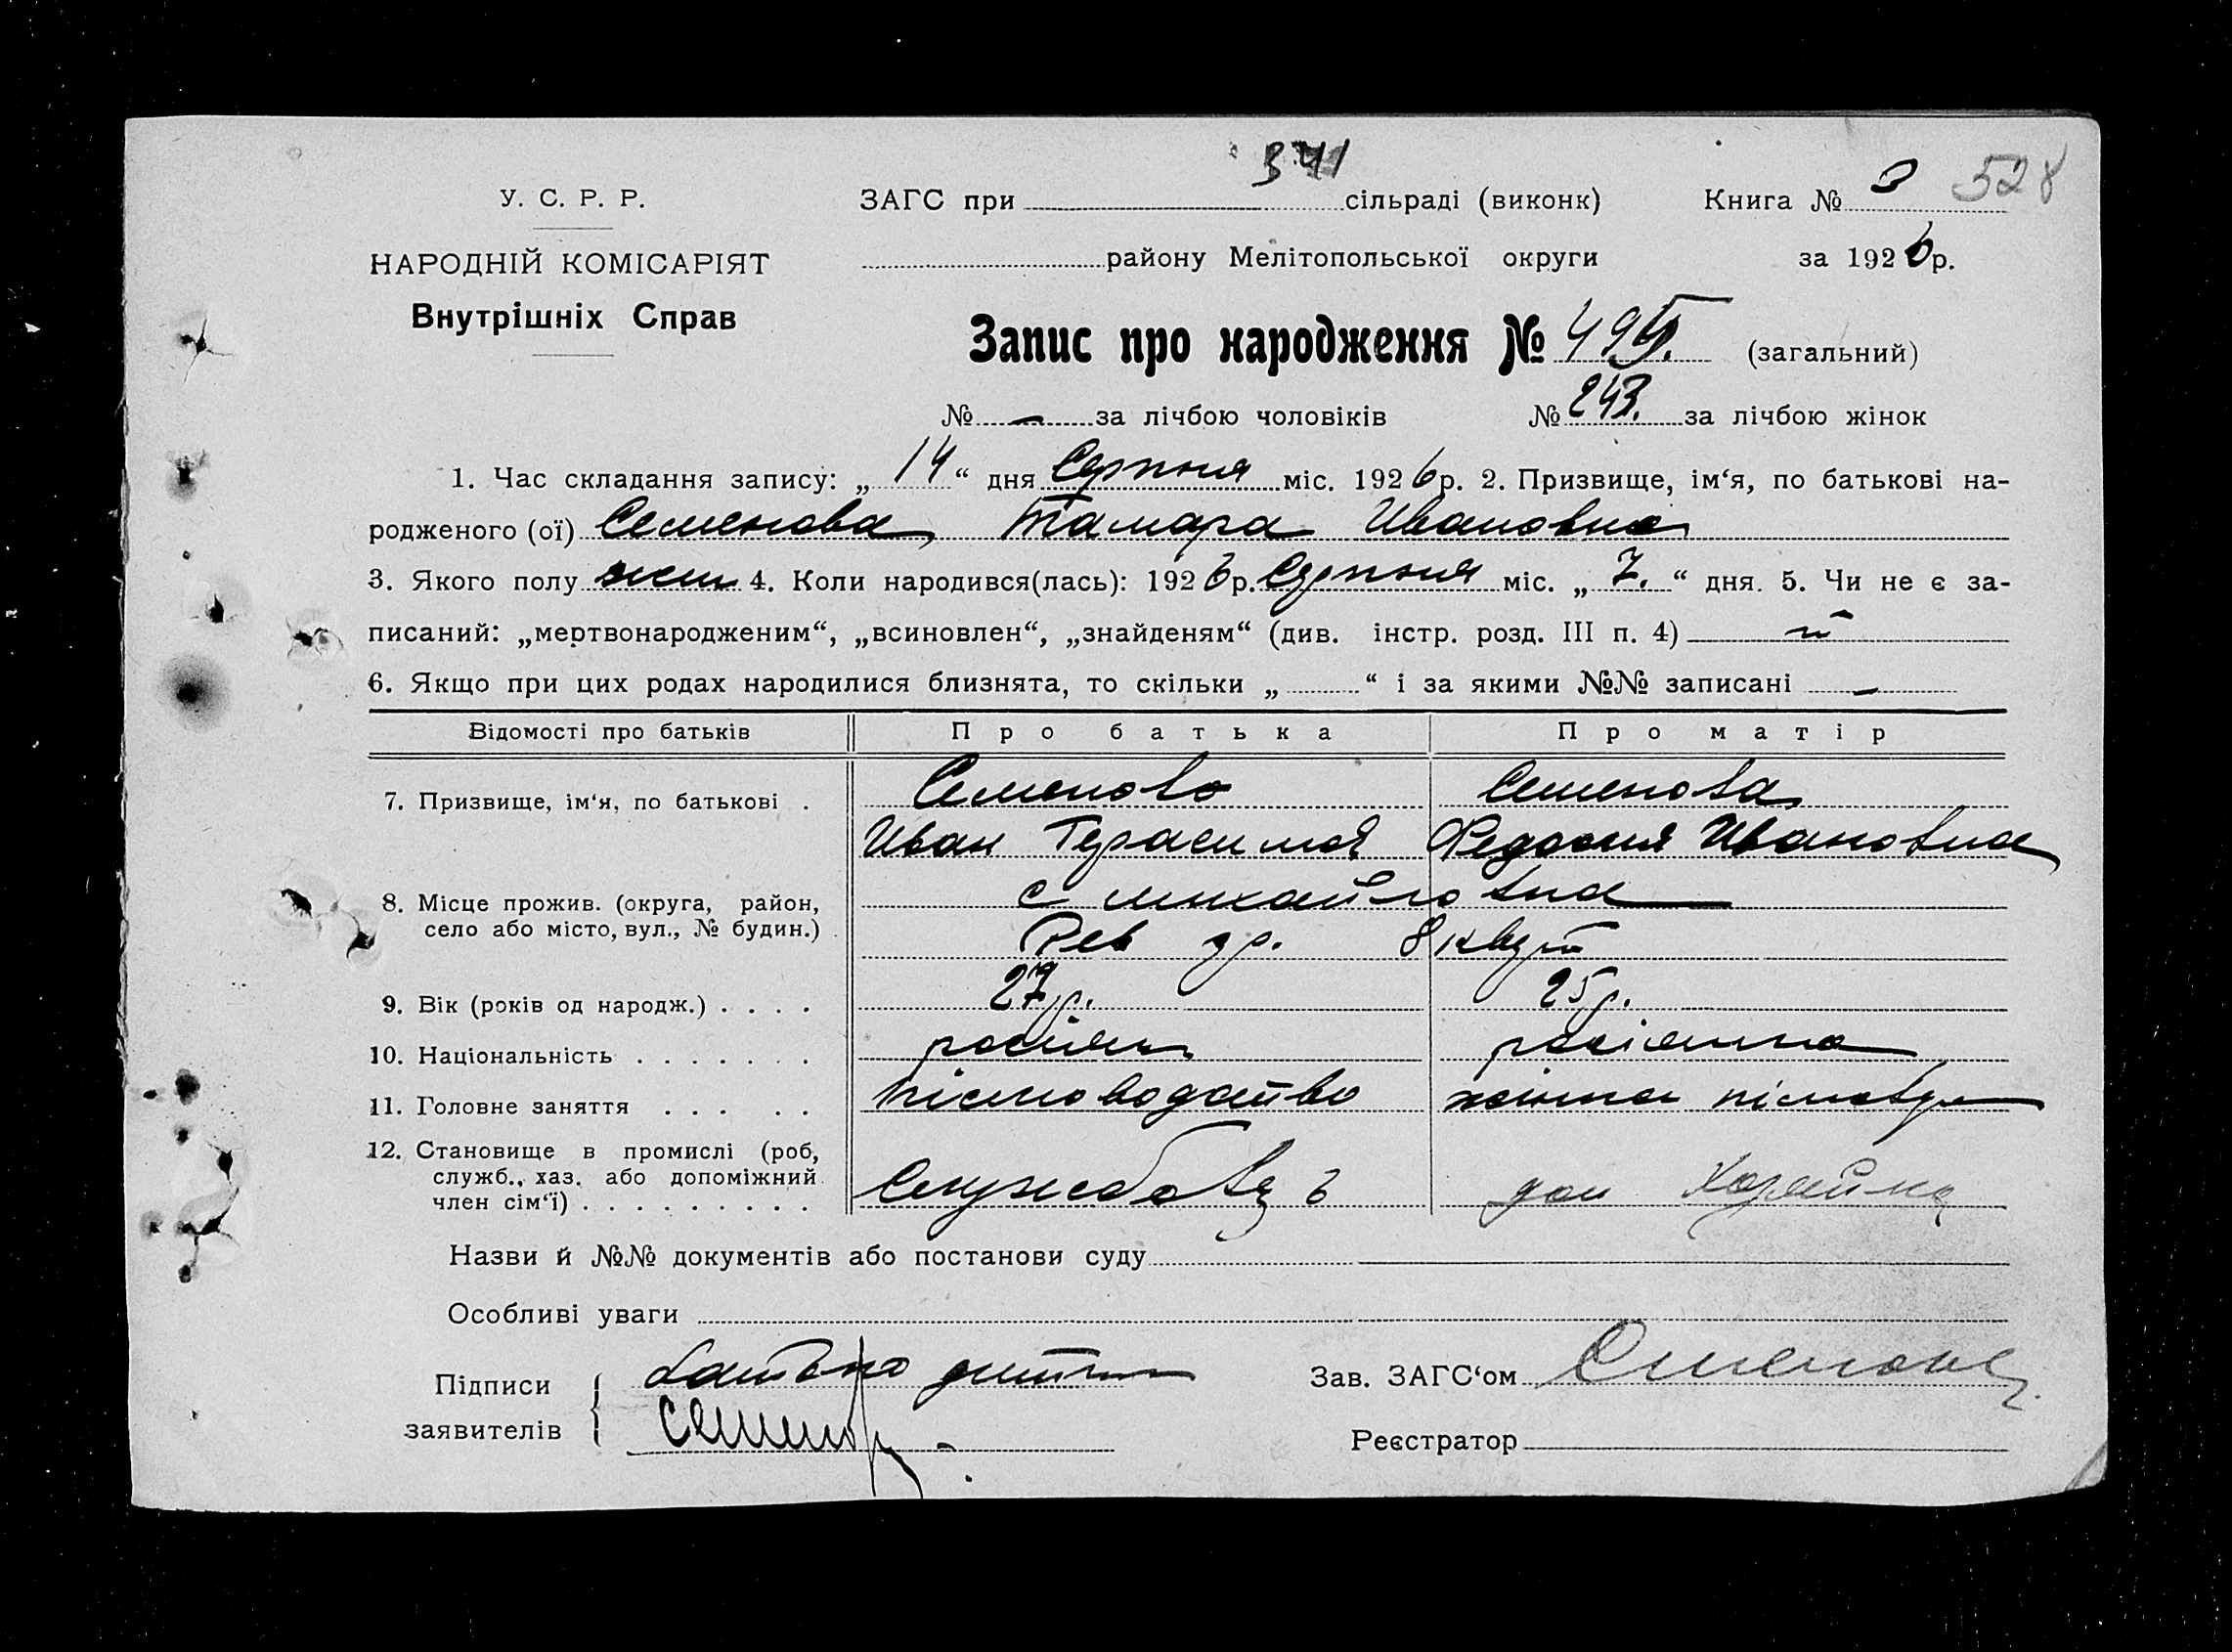 341
У. С. Р. Р.
ЗАГС при сільраді (виконк)
Книга № 3 528
НАРОДНІЙ КОМІСАРІЯТ
району Мелітопольської округи
за 1926 р.
Внутрішніх Справ
Запис про народження № 495. (загальний)
№ — за лічбою чоловіків № 243. за лічбою жінок
1. Час складання запису: „ 14 “ дня Серпня міс. 1926 р. 2. Призвище, ім‘я, по батькові на-
родженого (ої) Семенова, Тамара Ивановна
3. Якого полу жен 4. Коли народився(лась): 1926 р. Серпня міс. „ 7. “ дня. 5. Чи не є за-
писаний: „мертвонародженим“, „всиновлен“, „знайденям“ (див. інстр. розд. III п. 4)
6. Якщо при цих родах народилися близнята, то скільки „ “ і за якими №№ записані —
Відомості про батьків Про батька Про матір
7. Призвище, ім‘я, по батькові . Семенов Семенова
Иван Герасимов Федосия Ивановна
8. Місце прожив. (округа, район, село або місто, вул., № будин.) с михайловка
Рев 8 кварт
9. Вік (років од народж.) . . . . 27 р. 25 р.
10. Національність . . . . . . . росіянин росіянка
11. Головне заняття . . . . . письмоводство жінка
12. Становище в промислі (роб, служб., хаз. або допоміжний член сім‘ї) . . . . . . . . . Службовець дом Хозяйка
Назви й №№ документів або постанови суду
Особливі уваги
Підписи заявителів { батько дитини
Семенов
Зав. ЗАГС‘ом
Реєстратор